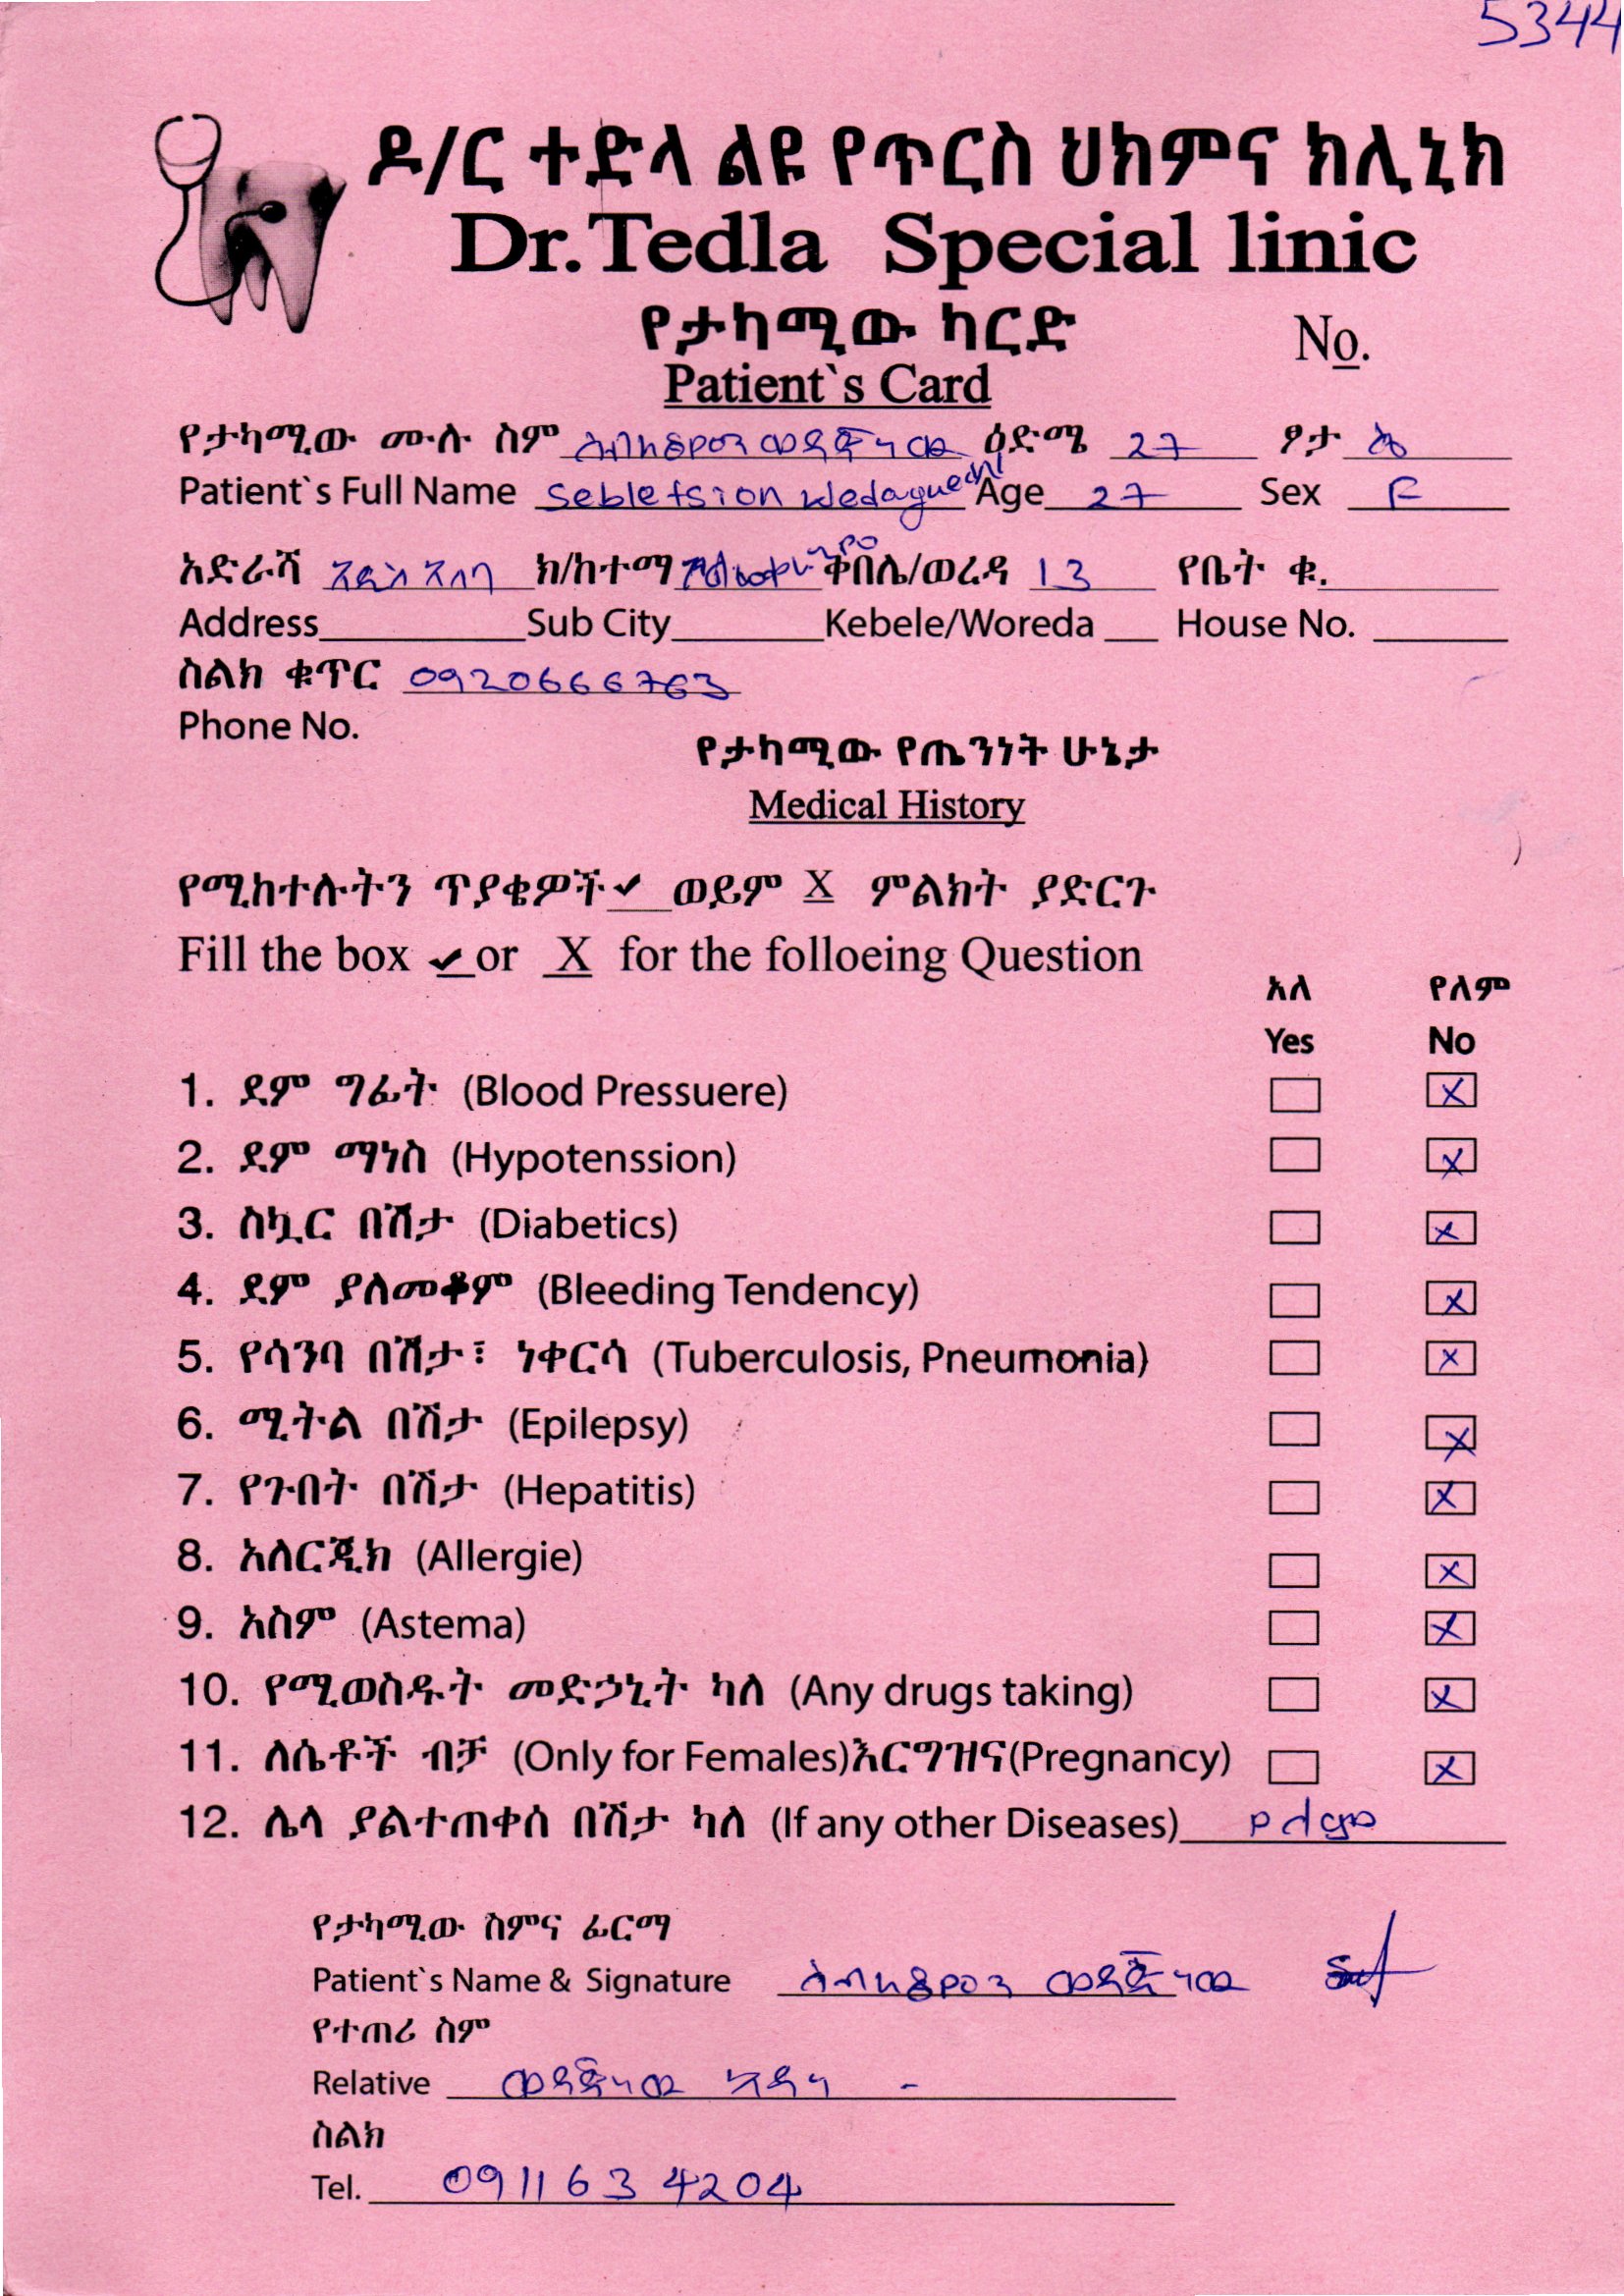 5344
ዶ/ር ተድላ ልዩ የጥርስ ህክምና ክሊኒክ
Dr.Tedla Special linic
የታካሚው ካርድ
No.
Patient`s Card
የታካሚው ሙሉ ስም ሰብለፅዮን ወዳጅነው ዕድሜ 27 ፆታ ሴ
Patient`s Full Name Sebletsion Wedaguechi Age 27 Sex F
አድራሻ አዲስ አበባ ክ/ከተማ ቀበሌ/ወረዳ 13 የቤት ቁ.
Address Sub City Kebele/Woreda House No.
ስልክ ቁጥር 0920666763
Phone No.
የታካሚው የጤንነት ሁኔታ
Medical History
የሚከተሉትን ጥያቄዎች ✓ ወይም X ምልክት ያድርጉ
Fill the box ✓ or X for the folloeing Question
አለ የለም
Yes No
1. ደም ግፊት (Blood Pressuere) X
2. ደም ማነስ (Hypotenssion) X
3. ስኳር በሽታ (Diabetics) X
4. ደም ያለመቆም (Bleeding Tendency) X
5. የሳንባ በሽታ፣ ነቀርሳ (Tuberculosis, Pneumonia) X
6. ሚትል በሽታ (Epilepsy) X
7. የጉበት በሽታ (Hepatitis) X
8. አለርጂክ (Allergie) X
9. አስም (Astema) X
10. የሚወስዱት መድኃኒት ካለ (Any drugs taking) X
11. ለሴቶች ብቻ (Only for Females)እርግዝና(Pregnancy) X
12. ሌላ ያልተጠቀሰ በሽታ ካለ (If any other Diseases) የለም
የታካሚው ስምና ፊርማ
Patient`s Name & Signature ሰብለፅዮን ወዳጅነው
የተጠሪ ስም
Relative ወዳጅነው -
ስልክ
Tel. 0911634204